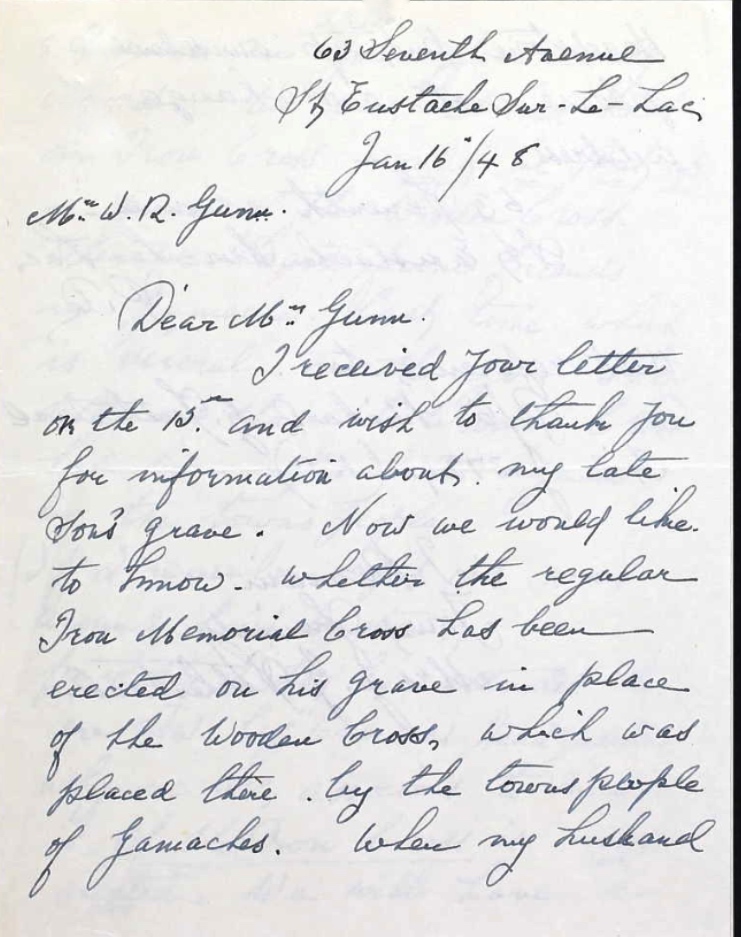 63 Seventh Avenue
St Eustache Sur-Le-Lac,
Jan 16"/48
Mr. W. R. Gunn.
Dear Mr. Gunn.
I received your letter
on the 15th and wish to thank you
for information about. my late
Son's grave. Now we would like.
to know. whether the regular
Iron Memorial Cross has been
erected on his grave in place
of the Wooden Cross, which was
placed there . by the towns people
of Gamaches. When my husband